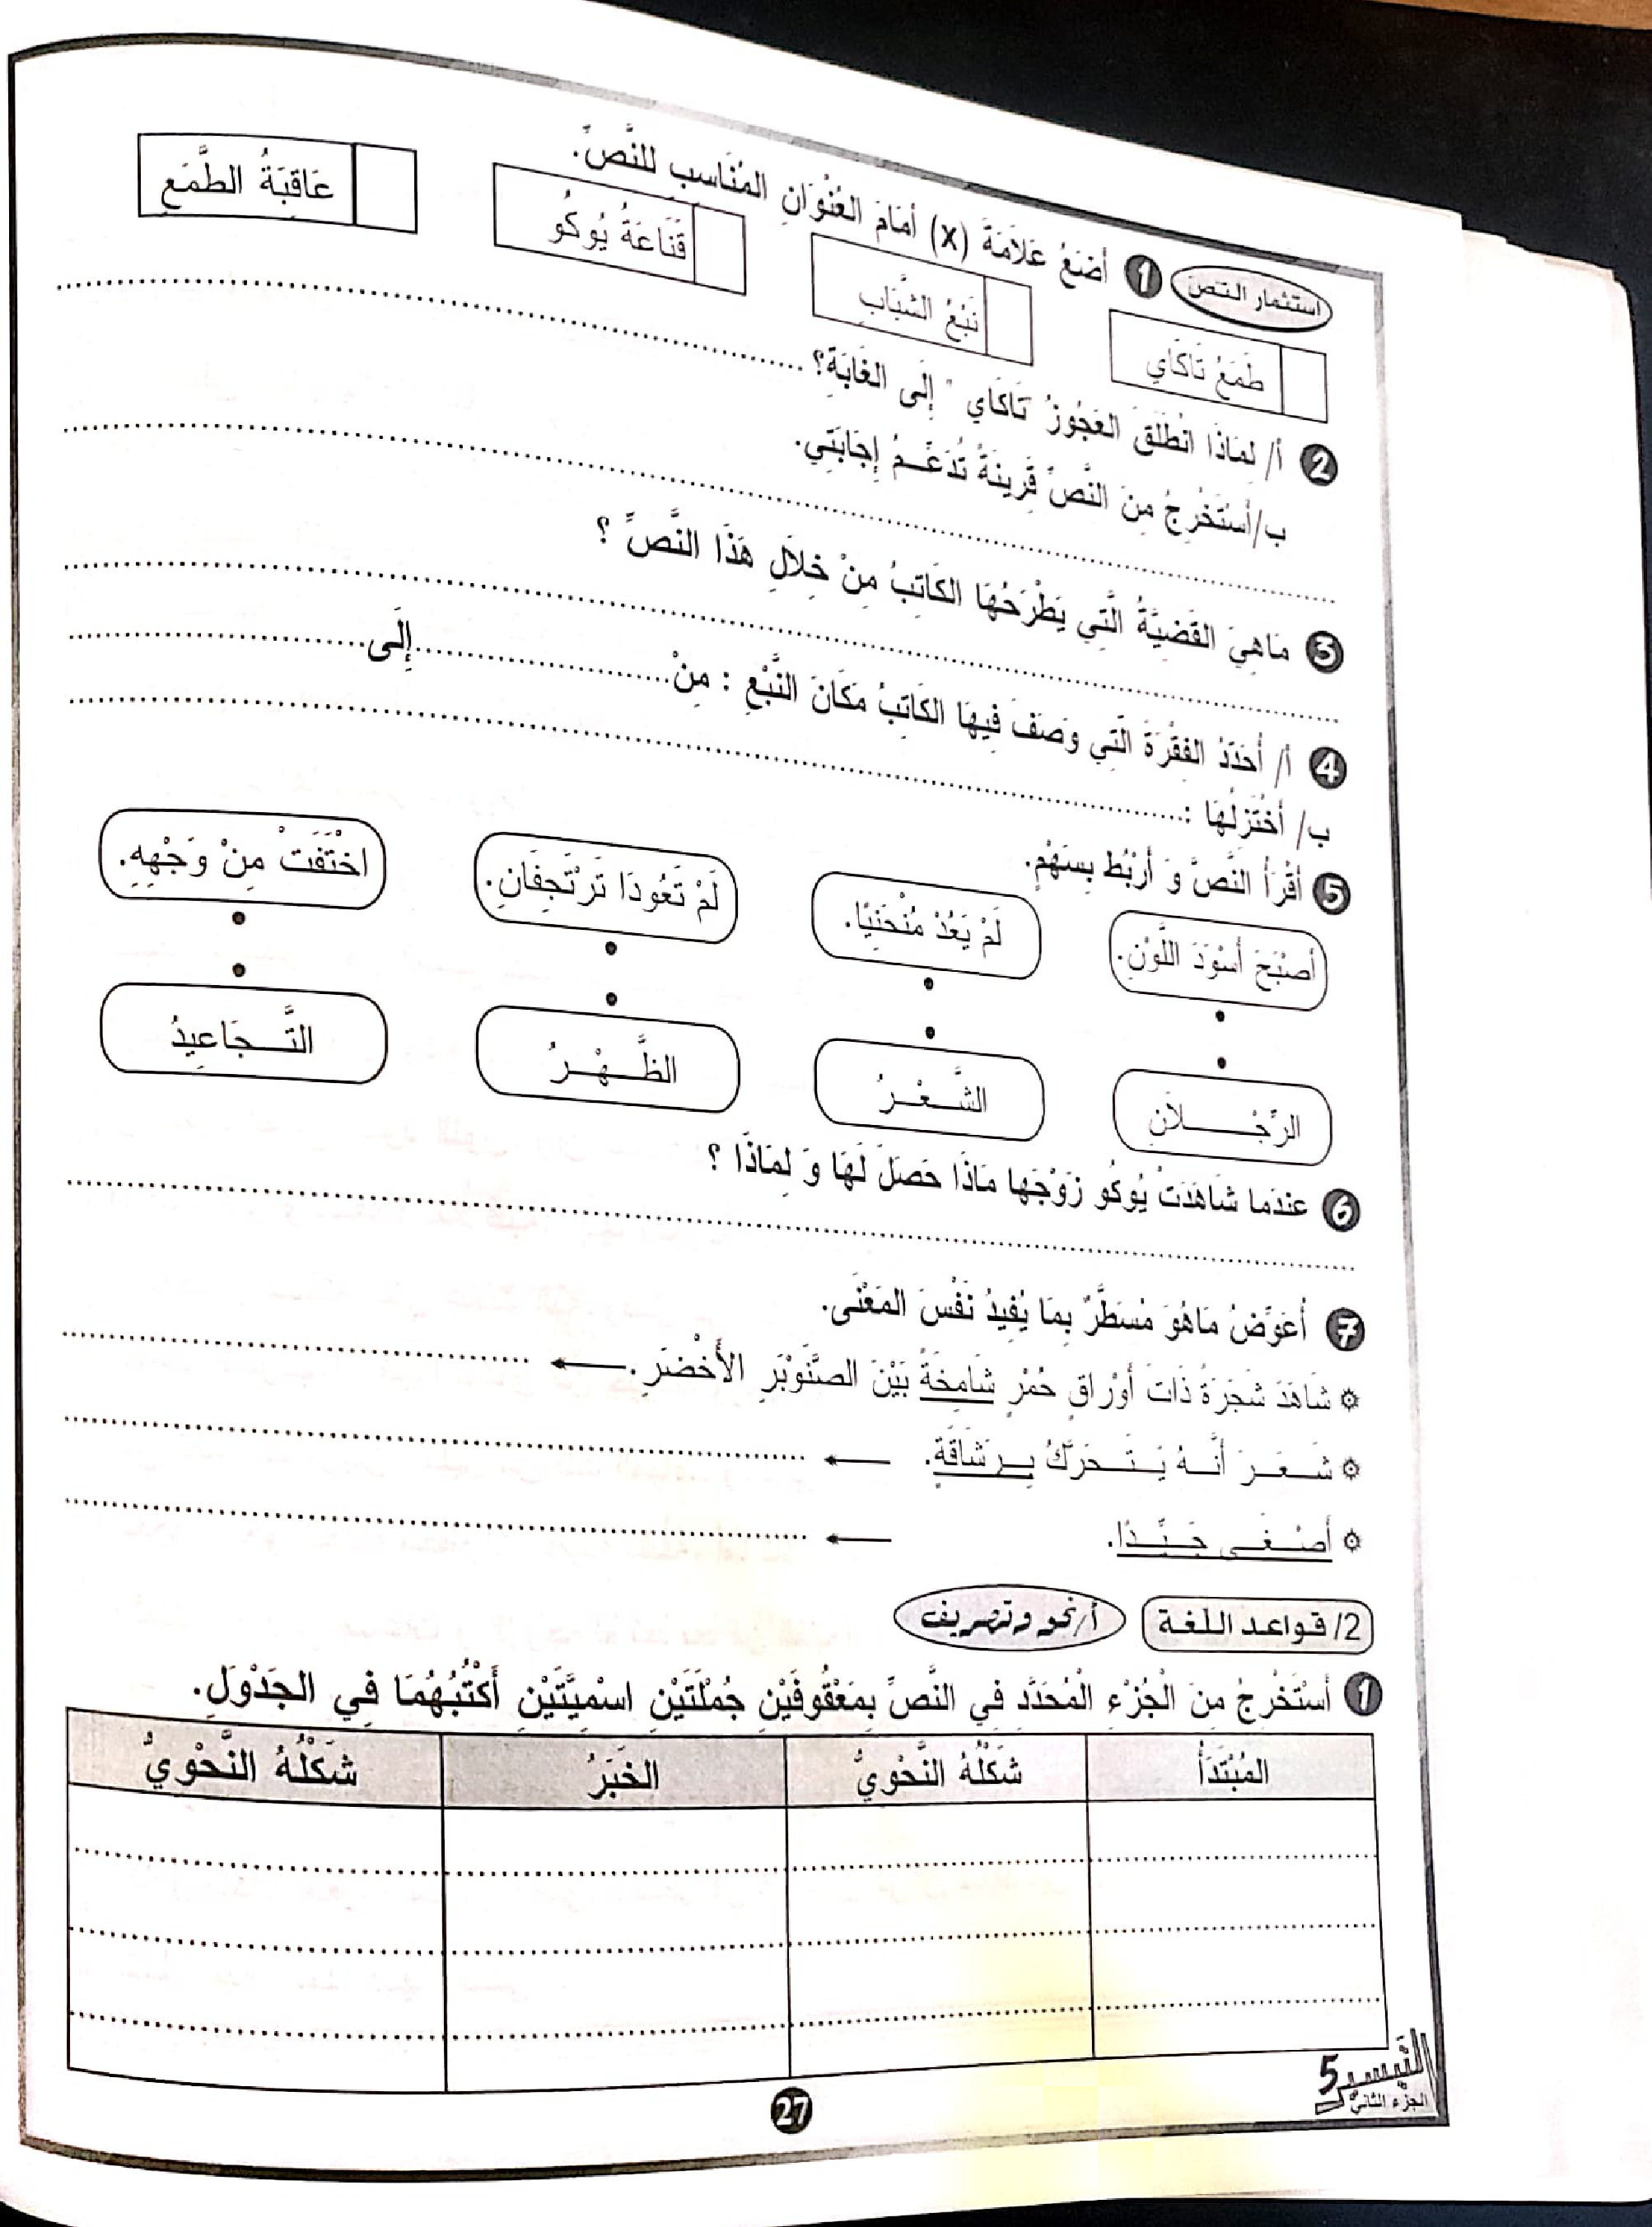 استثمار النص ① أَضَعُ عَلاَمَةَ (x) أَمَامَ العُنْوَانِ المُنَاسِبِ لِلنَّصِّ.
طَمَعُ تَاكَاي
نَبْعُ الشَّبَابِ
قَنَاعَةُ يُوكُو
عَاقِبَةُ الطَّمَعِ
② أ/ لِمَاذَا انْطَلَقَ العَجُوزُ تَاكَاي " إِلَى الغَابَةِ؟
ب/أَسْتَخْرِجُ مِنَ النَّصِّ قَرِينَةً تُدَعِّمُ إِجَابَتِي.
③ مَاهِيَ القَضِيَّةُ الَّتِي يَطْرَحُهَا الكَاتِبُ مِنْ خِلاَلِ هَذَا النَّصِّ ؟
④ أ/ أُحَدِّدُ الفِقْرَةَ الّتِي وَصَفَ فِيهَا الكَاتِبُ مَكَانَ النَّبْعِ : مِنْ..........إِلَى..........
ب/ أَخْتَزِلُهَا :
⑤ أَقْرَأُ النَّصَّ وَ أَرْبُط بِسَهْمٍ.
أَصْبَحَ أَسْوَدَ اللَّوْنِ.
لَمْ يَعُدْ مُنْحَنِيًا.
لَمْ تَعُودَا تَرْتَجِفَانِ.
اخْتَفَتْ مِنْ وَجْهِهِ.
الرِّجْلاَنِ
الشَّعْرُ
الظَّهْرُ
التَّجَاعِيدُ
⑥ عِنْدَما شَاهَدَتْ يُوكُو زَوْجَها مَاذَا حَصَلَ لَهَا وَ لِمَاذَا ؟
⑦ أُعَوِّضُ مَاهُوَ مُسَطَّرٌ بِمَا يُفِيدُ نَفْسَ المَعْنَى.
شَاهَدَ شَجَرَةً ذَاتَ أَوْرَاقٍ حُمْرٍ شَامِخَةً بَيْنَ الصَّنَوْبَرِ الأَخْضَرِ. ←
شَعَرَ أَنَّهُ يَتَحَرَّكُ بِرَشَاقَةٍ. ←
أَصْغَى جَيِّدًا. ←
2/ قواعد اللغة أ/نحو وتصريف
① أَسْتَخْرِجُ مِنَ الْجُزْءِ الْمُحَدَّدِ فِي النَّصِّ بِمَعْقُوفَيْنِ جُمْلَتَيْنِ اسْمِيَّتَيْنِ أَكْتُبُهُمَا فِي الجَدْوَلِ.
المُبْتَدَأُ شَكْلُهُ النَّحْوِيُّ الخَبَرُ شَكْلُهُ النَّحْوِيُّ
التيسير 5
الجزء الثاني
27